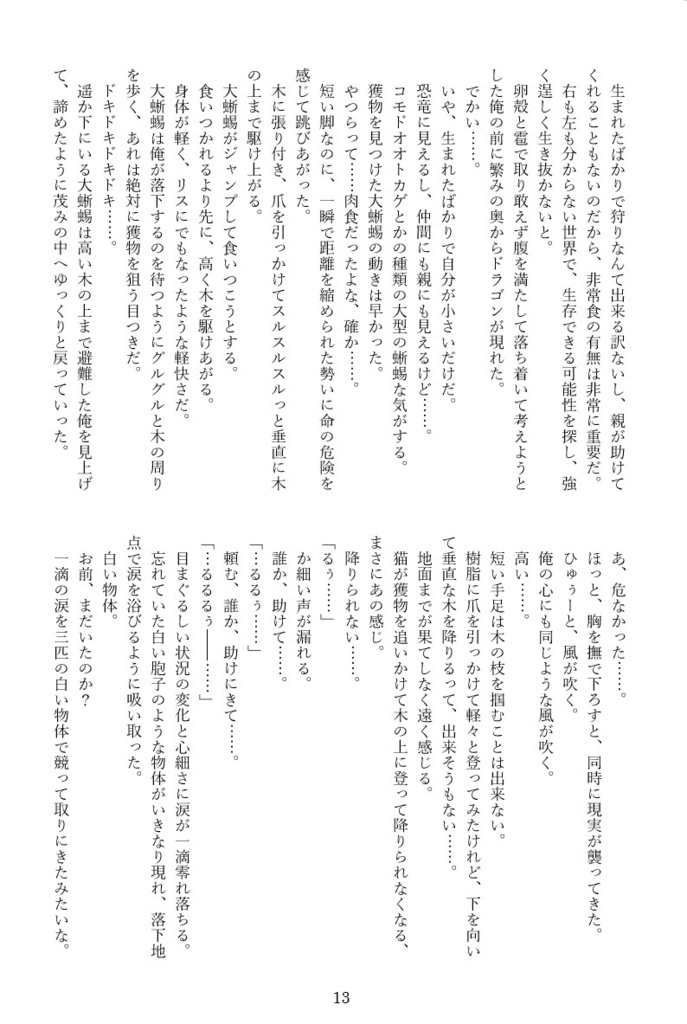 生まれたばかりで狩りなんて出来る訳ないし、親が助けて
くれることもないのだから、非常食の有無は非常に重要だ。
右も左も分からない世界で、生存できる可能性を探し、強
く逞しく生き抜かないと。
卵殻と雹で取り敢えず腹を満たして落ち着いて考えようと
した俺の前に繁みの奥からドラゴンが現れた。
でかい……。
いや、生まれたばかりで自分が小さいだけだ。
恐竜に見えるし、仲間にも親にも見えるけど……。
コモドオオトカゲとかの種類の大型の蜥蜴な気がする。
獲物を見つけた大蜥蜴の動きは早かった。
やつらって……肉食だったよな、確か……。
短い脚なのに、一瞬で距離を縮められた勢いに命の危険を
感じて跳びあがった。
木に張り付き、爪を引っかけてスルスルスルっと垂直に木
の上まで駆け上がる。
大蜥蜴がジャンプして食いつこうとする。
食いつかれるより先に、高く木を駆けあがる。
身体が軽く、リスにでもなったような軽快さだ。
大蜥蜴は俺が落下するのを待つようにグルグルと木の周り
を歩く、あれは絶対に獲物を狙う目つきだ。
ドキドキドキドキ……。
遥か下にいる大蜥蜴は高い木の上まで避難した俺を見上げ
て、諦めたように茂みの中へゆっくりと戻っていった。
あ、危なかった……。
ほっと、胸を撫で下ろすと、同時に現実が襲ってきた。
ひゅぅーと、風が吹く。
俺の心にも同じような風が吹く。
高い……。
短い手足は木の枝を掴むことは出来ない。
樹脂に爪を引っかけて軽々と登ってみたけれど、下を向い
て垂直な木を降りるって、出来そうもない……。
地面までが果てしなく遠く感じる。
猫が獲物を追いかけて木の上に登って降りられなくなる、
まさにあの感じ。
降りられない……。
「るぅ……」
か細い声が漏れる。
誰か、助けて……。
「…るるぅ……」
頼む、誰か、助けにきて……。
「…るるるぅ――……」
目まぐるしい状況の変化と心細さに涙が一滴零れ落ちる。
忘れていた白い胞子のような物体がいきなり現れ、落下地
点で涙を浴びるように吸い取った。
白い物体。
お前、まだいたのか？
一滴の涙を三匹の白い物体で競って取りにきたみたいな。
13